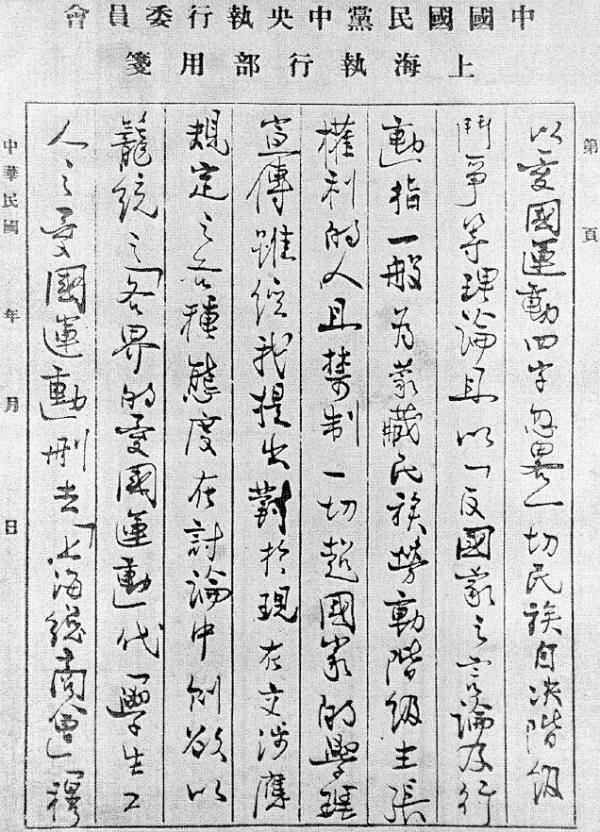 中國國民黨中央執行委員會
上海執行部用箋
第 頁
以愛國運動四字忽畧一切民族自決階級
鬥爭等理論且以「反國家之言論及行
動」指一般為蒙藏民族勞動階級主張
權利的人且禁制一切超國家的學理
宣傳雖經我提出對於現在交涉應
規定之各種態度在討論中則欲以
籠統之「各界的愛國運動」代「學生工
人之愛國運動」刪去「上海總商會」穆
中華民國 年 月 日